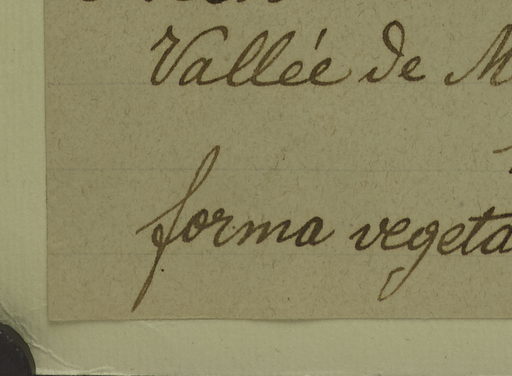 Vallée de M
forma vegeta